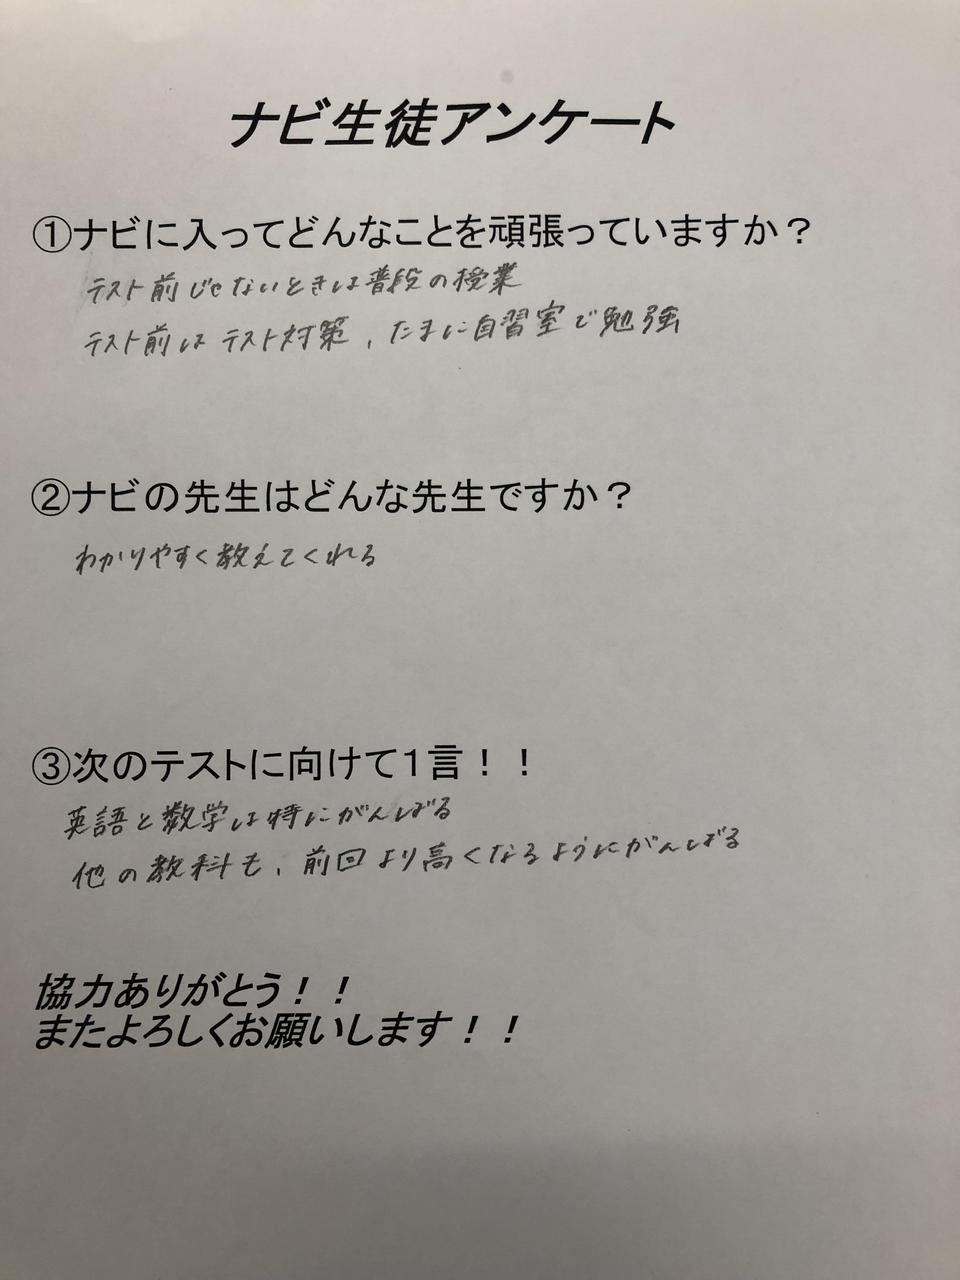 ナビ生徒アンケート
①ナビに入ってどんなことを頑張っていますか？
テスト前じゃないときは普段の授業
テスト前は テスト対策、たまに自習室で勉強
②ナビの先生はどんな先生ですか？
わかりやすく教えてくれる
③次のテストに向けて１言！！
英語と数学は特にがんばる
他の教科も、前回より高くなるようにがんばる
協力ありがとう！！
またよろしくお願いします！！